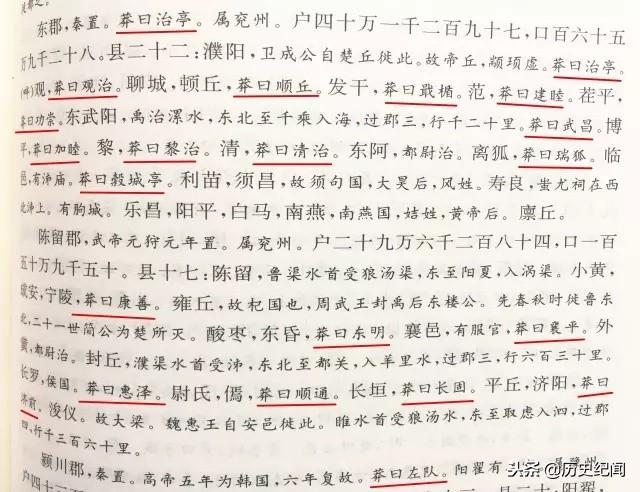 东郡，秦置。莽曰治亭。属兖州。户四十万一千二百九十七，口百六十五
万九千二十八。县二十二：濮阳，卫成公自楚丘徙此。故帝丘，颛顼虚。莽曰治亭。
(畔)观，莽曰观治。聊城，顿丘，莽曰顺丘。发干，莽曰戢楯。范，莽曰建睦。茬平，
莽曰功崇。东武阳，禹治漯水，东北至千乘入海，过郡三，行千二十里。莽曰武昌。博
平，莽曰加睦。黎，莽曰黎治。清，莽曰清治。东阿，都尉治。离狐，莽曰瑞狐。临
邑，有泲庙。莽曰穀城亭。利苗，须昌，故须句国，大昊后，风姓。寿良，蚩尤祠在西
北泲上。有朐城。乐昌，阳平，白马，南燕，南燕国，姞姓，黄帝后。廪丘。
陈留郡，武帝元狩元年置。属兖州。户二十九万六千二百八十四，口一百
五十万九千五十。县十七：陈留，鲁渠水首受狼汤渠，东至阳夏，入涡渠。小黄，
成安，宁陵，莽曰康善。雍丘，故杞国也，周武王封禹后东楼公。先春秋时徙鲁东
北，二十一世简公为楚所灭。酸枣，东昏，莽曰东明。襄邑，有服官，莽曰襄平。外
黄，都尉治。封丘，濮渠水首受泲，东北至都关，入羊里水，过郡三，行六百三十里。
长罗，侯国。莽曰惠泽。尉氏，傿，莽曰顺通。长垣，莽曰长固。平丘，济阳，莽曰
济前。浚仪。故大梁。魏惠王自安邑徙此。睢水首受狼汤水，东至取虑入泗，过郡
四，行千三百六十里。
颍川郡，秦置。高帝五年为韩国，六年复故。莽曰左队。阳翟有
头条 @历史纪闻